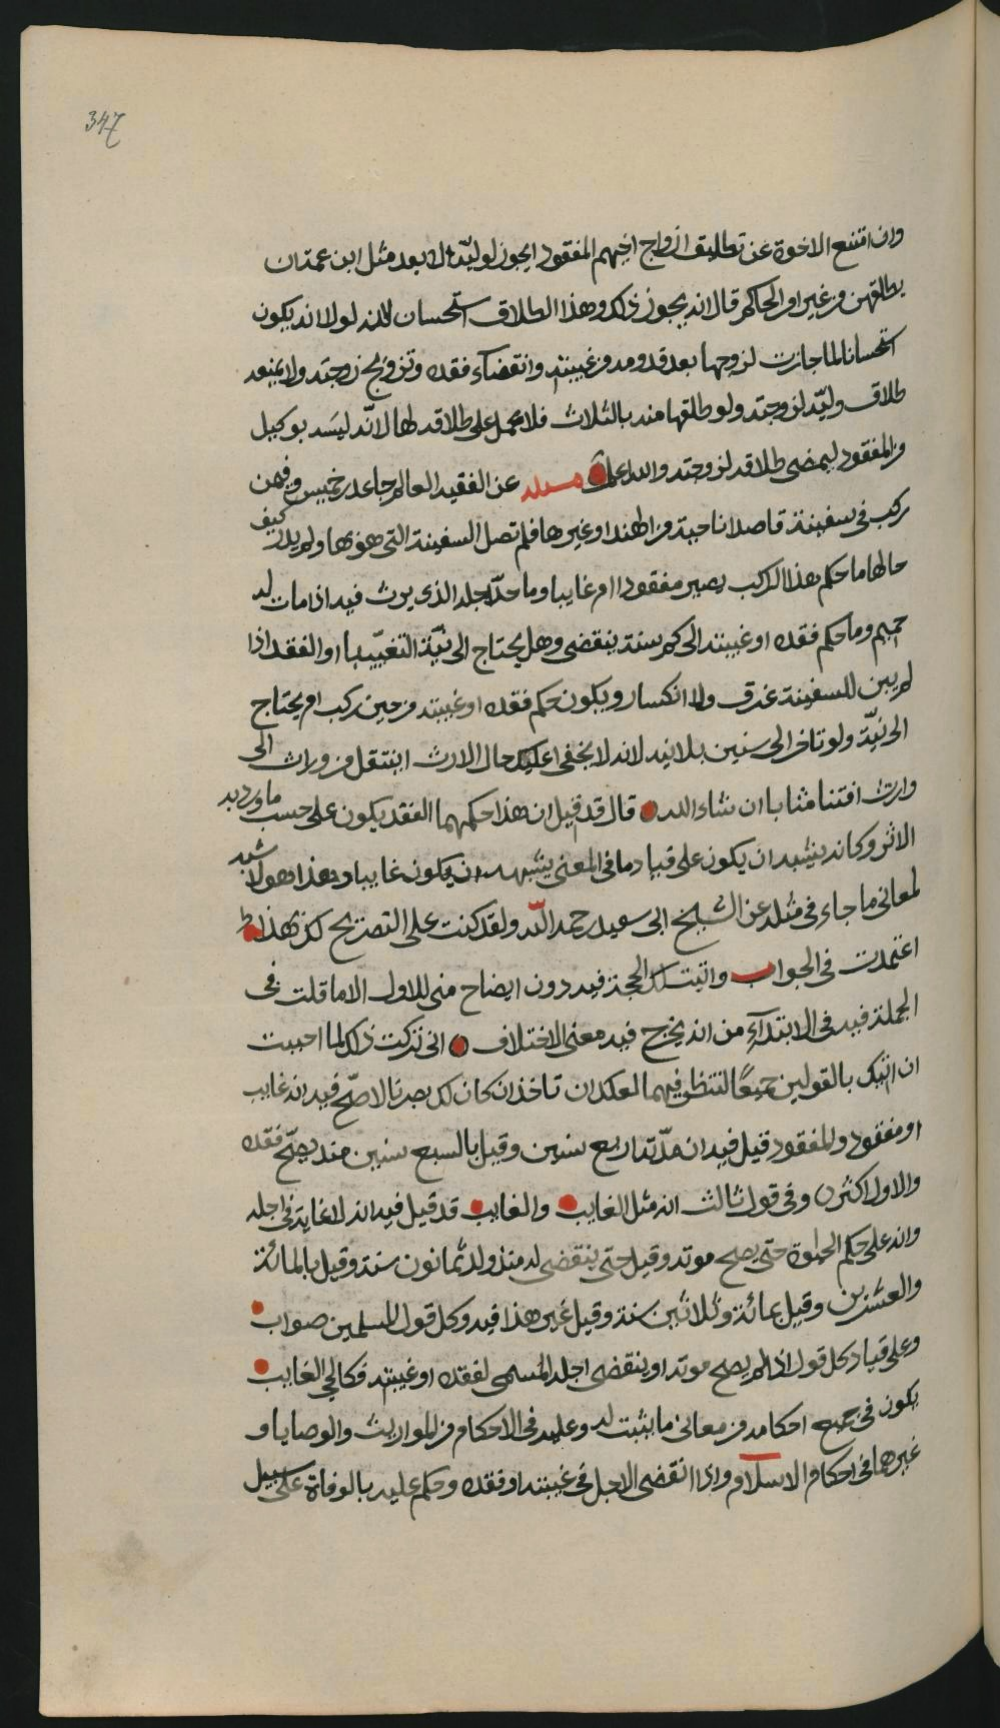 347
وان اقتنع الاخوة عن تطليق ازواج اخيهم المفقود ايجوز لوليّه الابعد مثل ابن عمه ان
يطلقهن من غير امر الحاكم قال انه يجوز ذلك وهذا الطلاق استحسان لانه لولا انه يكون
استحسانا لما جازت لزوجها بعد قدومه من غيبته وانقضاء فقده وتزويج زوجته ولا يمنعه
طلاق وليّه لزوجته ولو طلقها منه بالثلاث فلا يحمل على طلاقه لها لانّه ليسه بوكيل
من المفقود ليمضي طلاقه لزوجته والله اعلم مسئلة عن الفقيه العالم جاعد بن خميس وفيمن
ركب في سفينة قاصدا ناحية من الهند او غيرها فلم تصل السفينة التي هو فيها ولم يدر كيف
حالها ما حكم هذا الركب يصير مفقودا ام غايبا وما حدّ اجله الذي يورث فيه اذا مات له
حميم وما حكم فقده او غيبته الى كم سنة ينقضي وهل يحتاج الى نيّة التغيّب او الفقد اذا
لم يبن للسفينة غرق ولا انكسار ويكون حكم فقده او غيبته من حين ركب ام يحتاج
الى نيّة ولو تاخر الى سنين بلا نيه لانه لا يخفى عليك حال الارث اينتقل من وراث الى
وارث افتنا مثابا ان شاء الله قال قد قيل ان هذا حكمهما الفقد يكون على حسب ما ورد به
الاثر وكانه يشبه ان يكون على قياد ما في المعنى يشبهه ان يكون غايبا وهذا هو الاشبه
لمعاني ما جاء في مثله عن الشيخ ابي سعيد رحمه اللّه ولقد كنت على التصريح لك بهذا
اعتمدت في الجواب واثبت لك الحجة فيه دون ايضاح مني للاول الا ما قلت في
الجملة فيه في الابتدآء من انه يخرج فيه معنى الاختلاف اني تركت ذلك لما احببت
ان اتيك بالقولين جميعًا لتنظر فيهما لعلك ان تاخذ ان كان لك بصر بالاصحّ فيه انه غايب
او مفقود والمفقود قيل فيه ان مدّته اربع سنين وقيل بالسبع سنين منذ يصحّ فقده
والاول اكثر وفي قول ثالث انه مثل الغايب والغايب قد قيل فيه انه لا غاية في اجله
وانه على حكم الحياوة حتى يصح موته وقيل حتى ينقضي له منذ ولد ثمانون سنة وقيل بالمائة
والعشرين وقيل بمائة وثلاثين سنة وقيل غير هذا فيه وكل قول المسلمين صواب
وعلى قياد كل قول اذا لم يصح موته او ينقضي اجله المسمى لفقده او غيبته فكالحي الغايب
يكون في جميع احكامه من معاني ما يثبت له وعليه في الاحكام من المواريث والوصايا و
غيرهما في احكام الاسلام واذا انقضى الاجل في غيبته او فقده وحكم عليه بالوفاة على سبيل